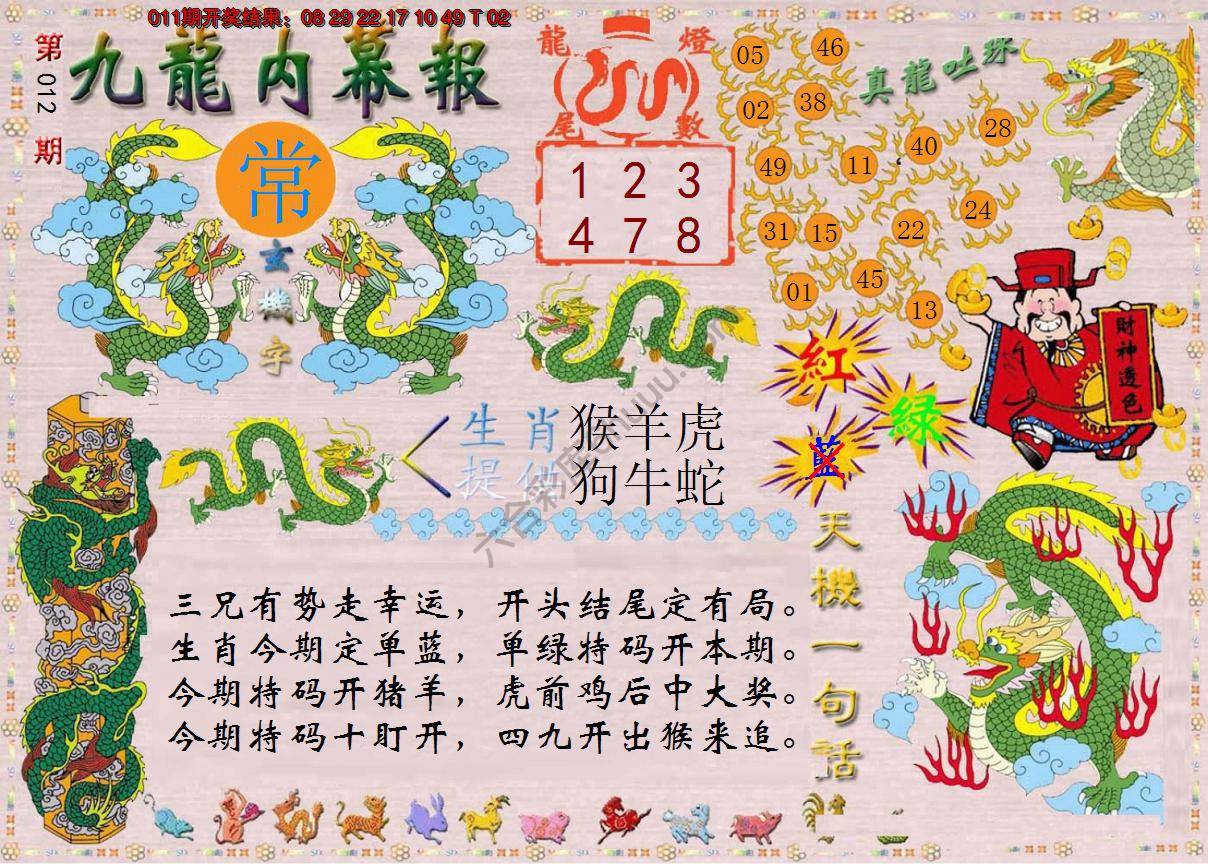 011期开奖结果：08 29 22 17 10 49 T 02
第012期
九龍内幕報
常
玄機字
龍燈
尾數
1 2 3
4 7 8
真龍吐珠
05
46
02
38
49
11
40
28
31
15
22
24
01
45
13
財神透色
紅
綠
藍
生肖
提供
猴羊虎
狗牛蛇
天機一句话
三兄有势走幸运，开头结尾定有局。
生肖今期定单蓝，单绿特码开本期。
今期特码开猪羊，虎前鸡后中大奖。
今期特码十盯开，四九开出猴来追。